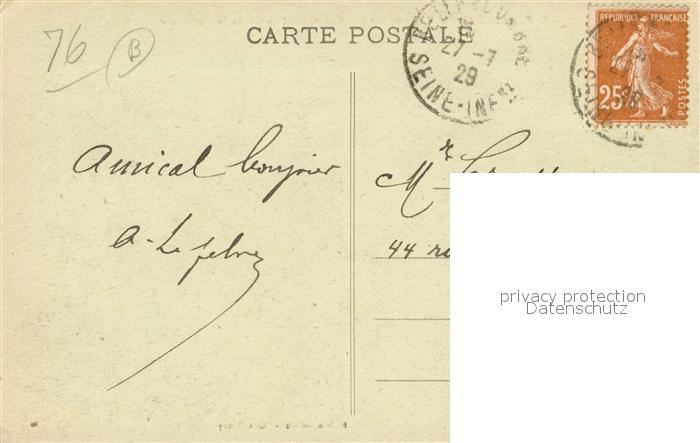 76
B
CARTE POSTALE
27-7
29
SEINE-INFRE
REPUBLIQUE FRANÇAISE
25
POSTES
Amical bonjour
A. Lefebvre
Mr
44
privacy protection
Datenschutz